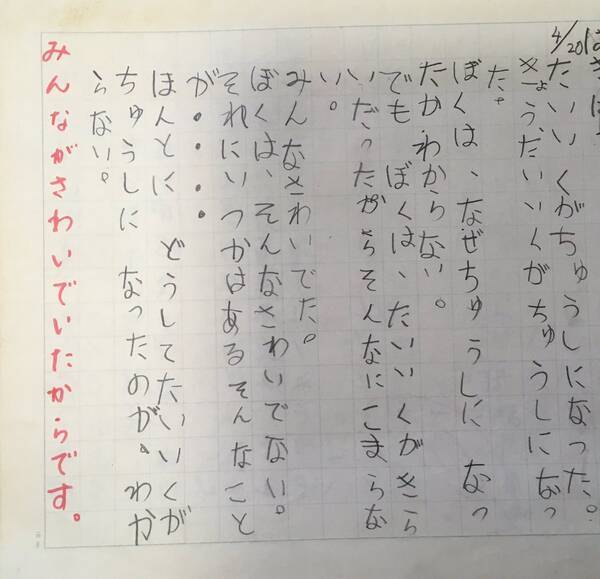 4/20
たいいくがちゅうしになった。
きょう、たいいくがちゅうしになっ
た。
ぼくは、なぜちゅうしに なっ
たかわからない。
でも ぼくは、たいいくがきら
いだったからそんなにこまらな
い。
みんなさわいでた。
ぼくは、そんなさわいでない。
それにいつかはあるそんなこと
が・・・・
ほんとに どうしてたいいくが
ちゅうしに なったのが、わか
らない。
みんながさわいでいたからです。